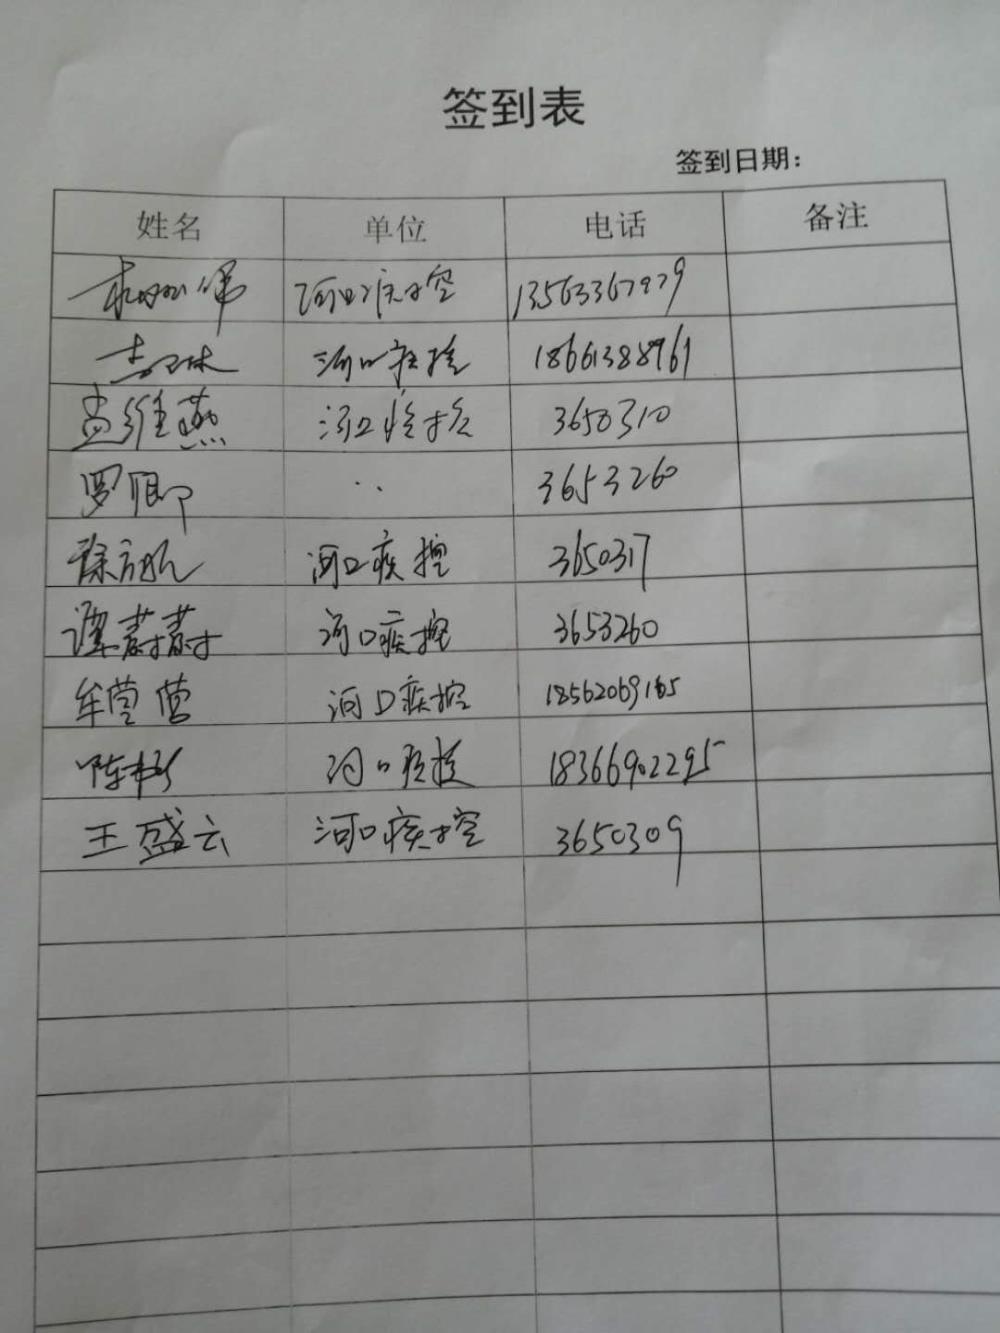 签到表
签到日期：
姓名 单位 电话 备注
河口疾控 13563367979
河口疾控 18661388961
尚维燕 河口疾控 3650310
罗卿 ·· 3653260
徐 河口疾控 3650317
谭蔚蔚 河口疾控 3653260
牟莹莹 河口疾控 18562069165
陈 河口疾控 18366902295
王盛云 河口疾控 3650309